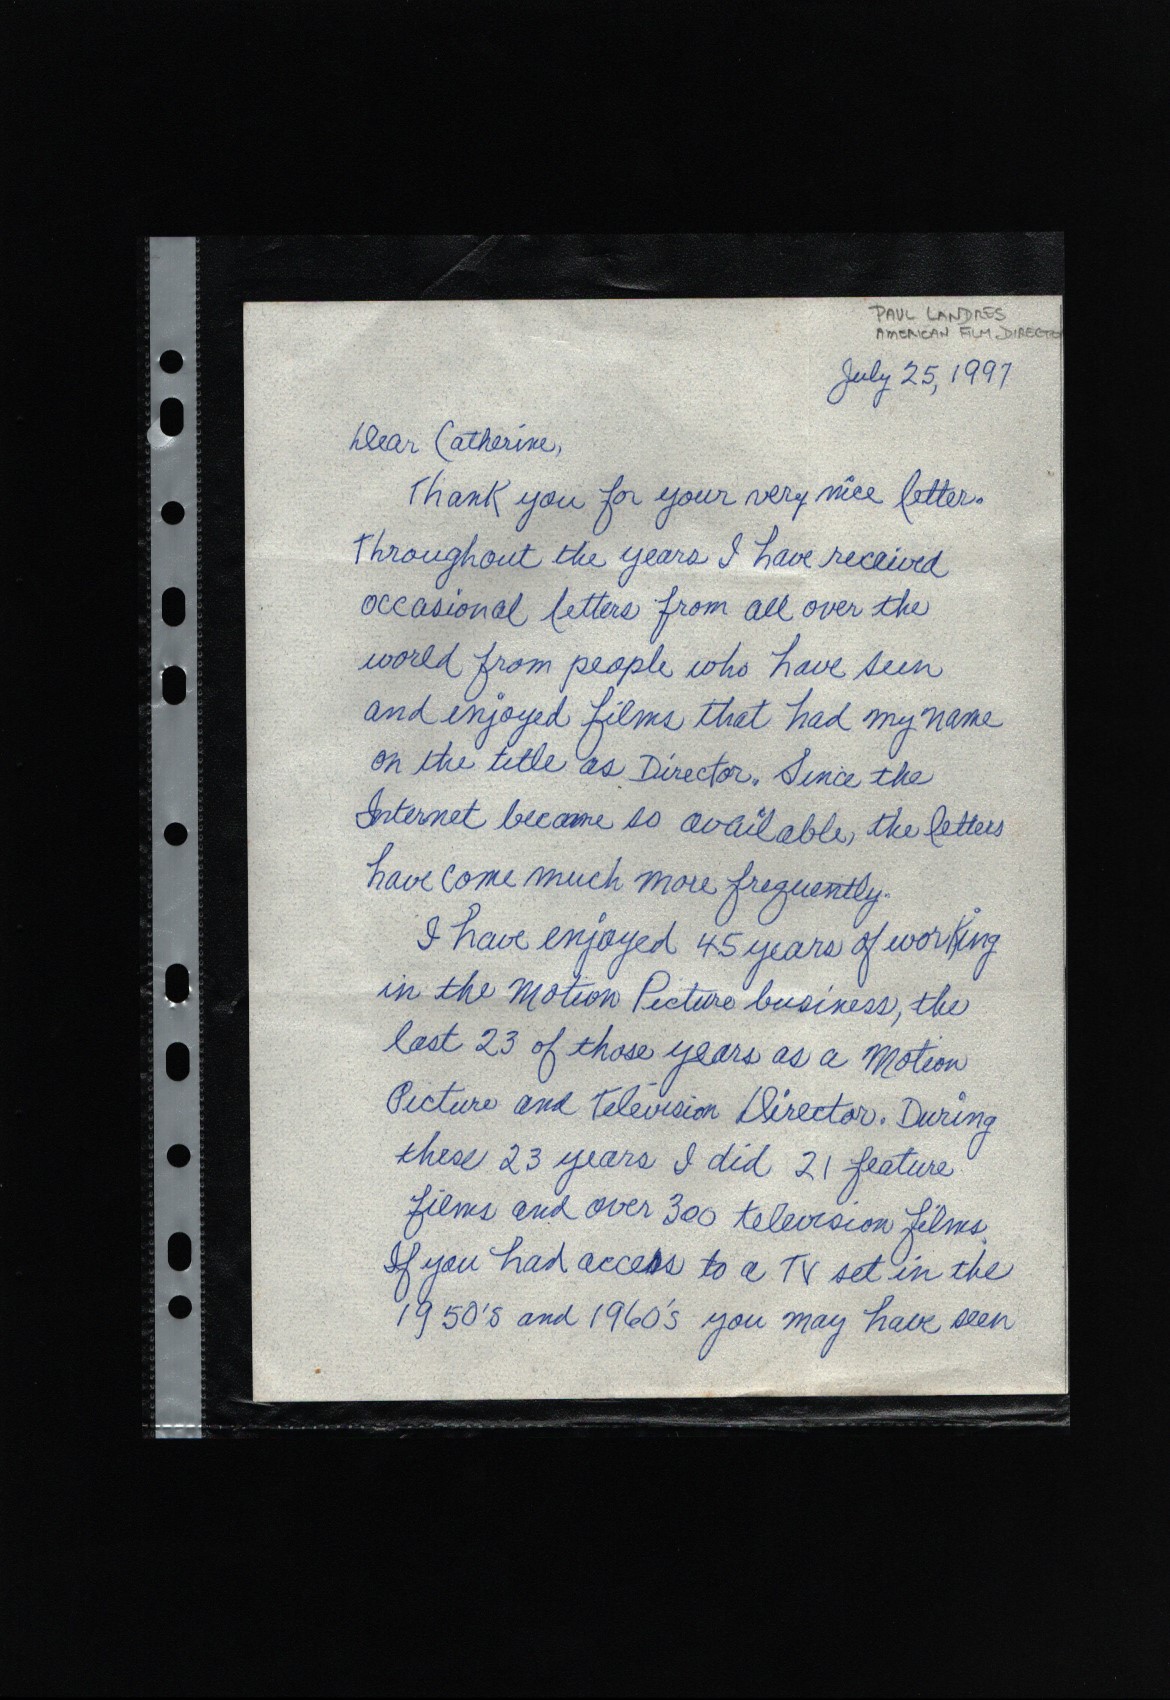 PAUL LANDRES
AMERICAN FILM DIRECTO
July 25, 1997
Dear Catherine,
Thank you for your very nice letter.
Throughout the years I have received
occasional letters from all over the
world from people who have seen
and enjoyed films that had my name
on the title as Director. Since the
Internet became so available, the letters
have come much more frequently.
I have enjoyed 45 years of working
in the Motion Picture business, the
last 23 of those years as a Motion
Picture and Television Director. During
these 23 years I did 21 feature
films and over 300 television films.
If you had access to a TV set in the
1950's and 1960's you may have seen